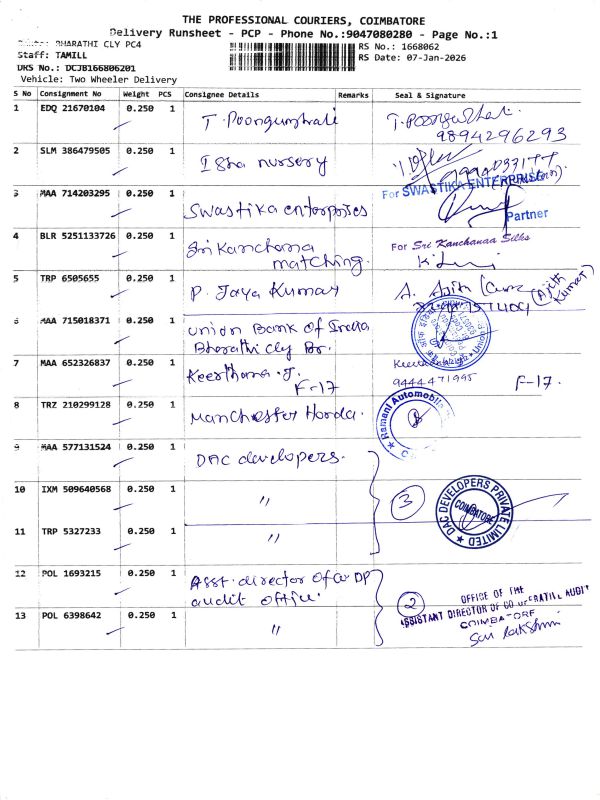 THE PROFESSIONAL COURIERS, COIMBATORE
Delivery Runsheet - PCP - Phone No.:9047080280 - Page No.:1
BHARATHI CLY PC4
RS No.: 1668062
Staff: TAMILL
RS Date: 07-Jan-2026
DRS No.: DCJB166806201
Vehicle: Two Wheeler Delivery
S No Consignment No Weight PCS Consignee Details Remarks Seal & Signature
1 EDQ 21670104 0.250 1 T. Poongunhali
9894296293
2 SLM 386479505 0.250 1 Isha nursery
3 MAA 714203295 0.250 1 Swastika enterprises For SWASTIKA ENTERPRISES
Partner
4 BLR 5251133726 0.250 1 Sri Kanchana
matching. For Sri Kanchanaa Silks
5 TRP 6505655 0.250 1 P. Jaya Kumar A. Ajith (Ajith Kumar)
6 MAA 715018371 0.250 1 Union Bank of India
Bharathi Cly Br.
7 MAA 652326837 0.250 1 Keerthana. J.
F-17 9444471995 F-17.
8 TRZ 210299128 0.250 1 Manchester Honda. Ramani Automobile
9 MAA 577131524 0.250 1 DAC developers.
10 IXM 509640568 0.250 1 〃 3 DAC DEVELOPERS PRIVATE LIMITED
COIMBATORE
11 TRP 5327233 0.250 1 〃
12 POL 1693215 0.250 1 Asst. director of
audit office. 2 OFFICE OF THE
ASSISTANT DIRECTOR OF CO OPERATIVE AUDIT
COIMBATORE
13 POL 6398642 0.250 1 〃